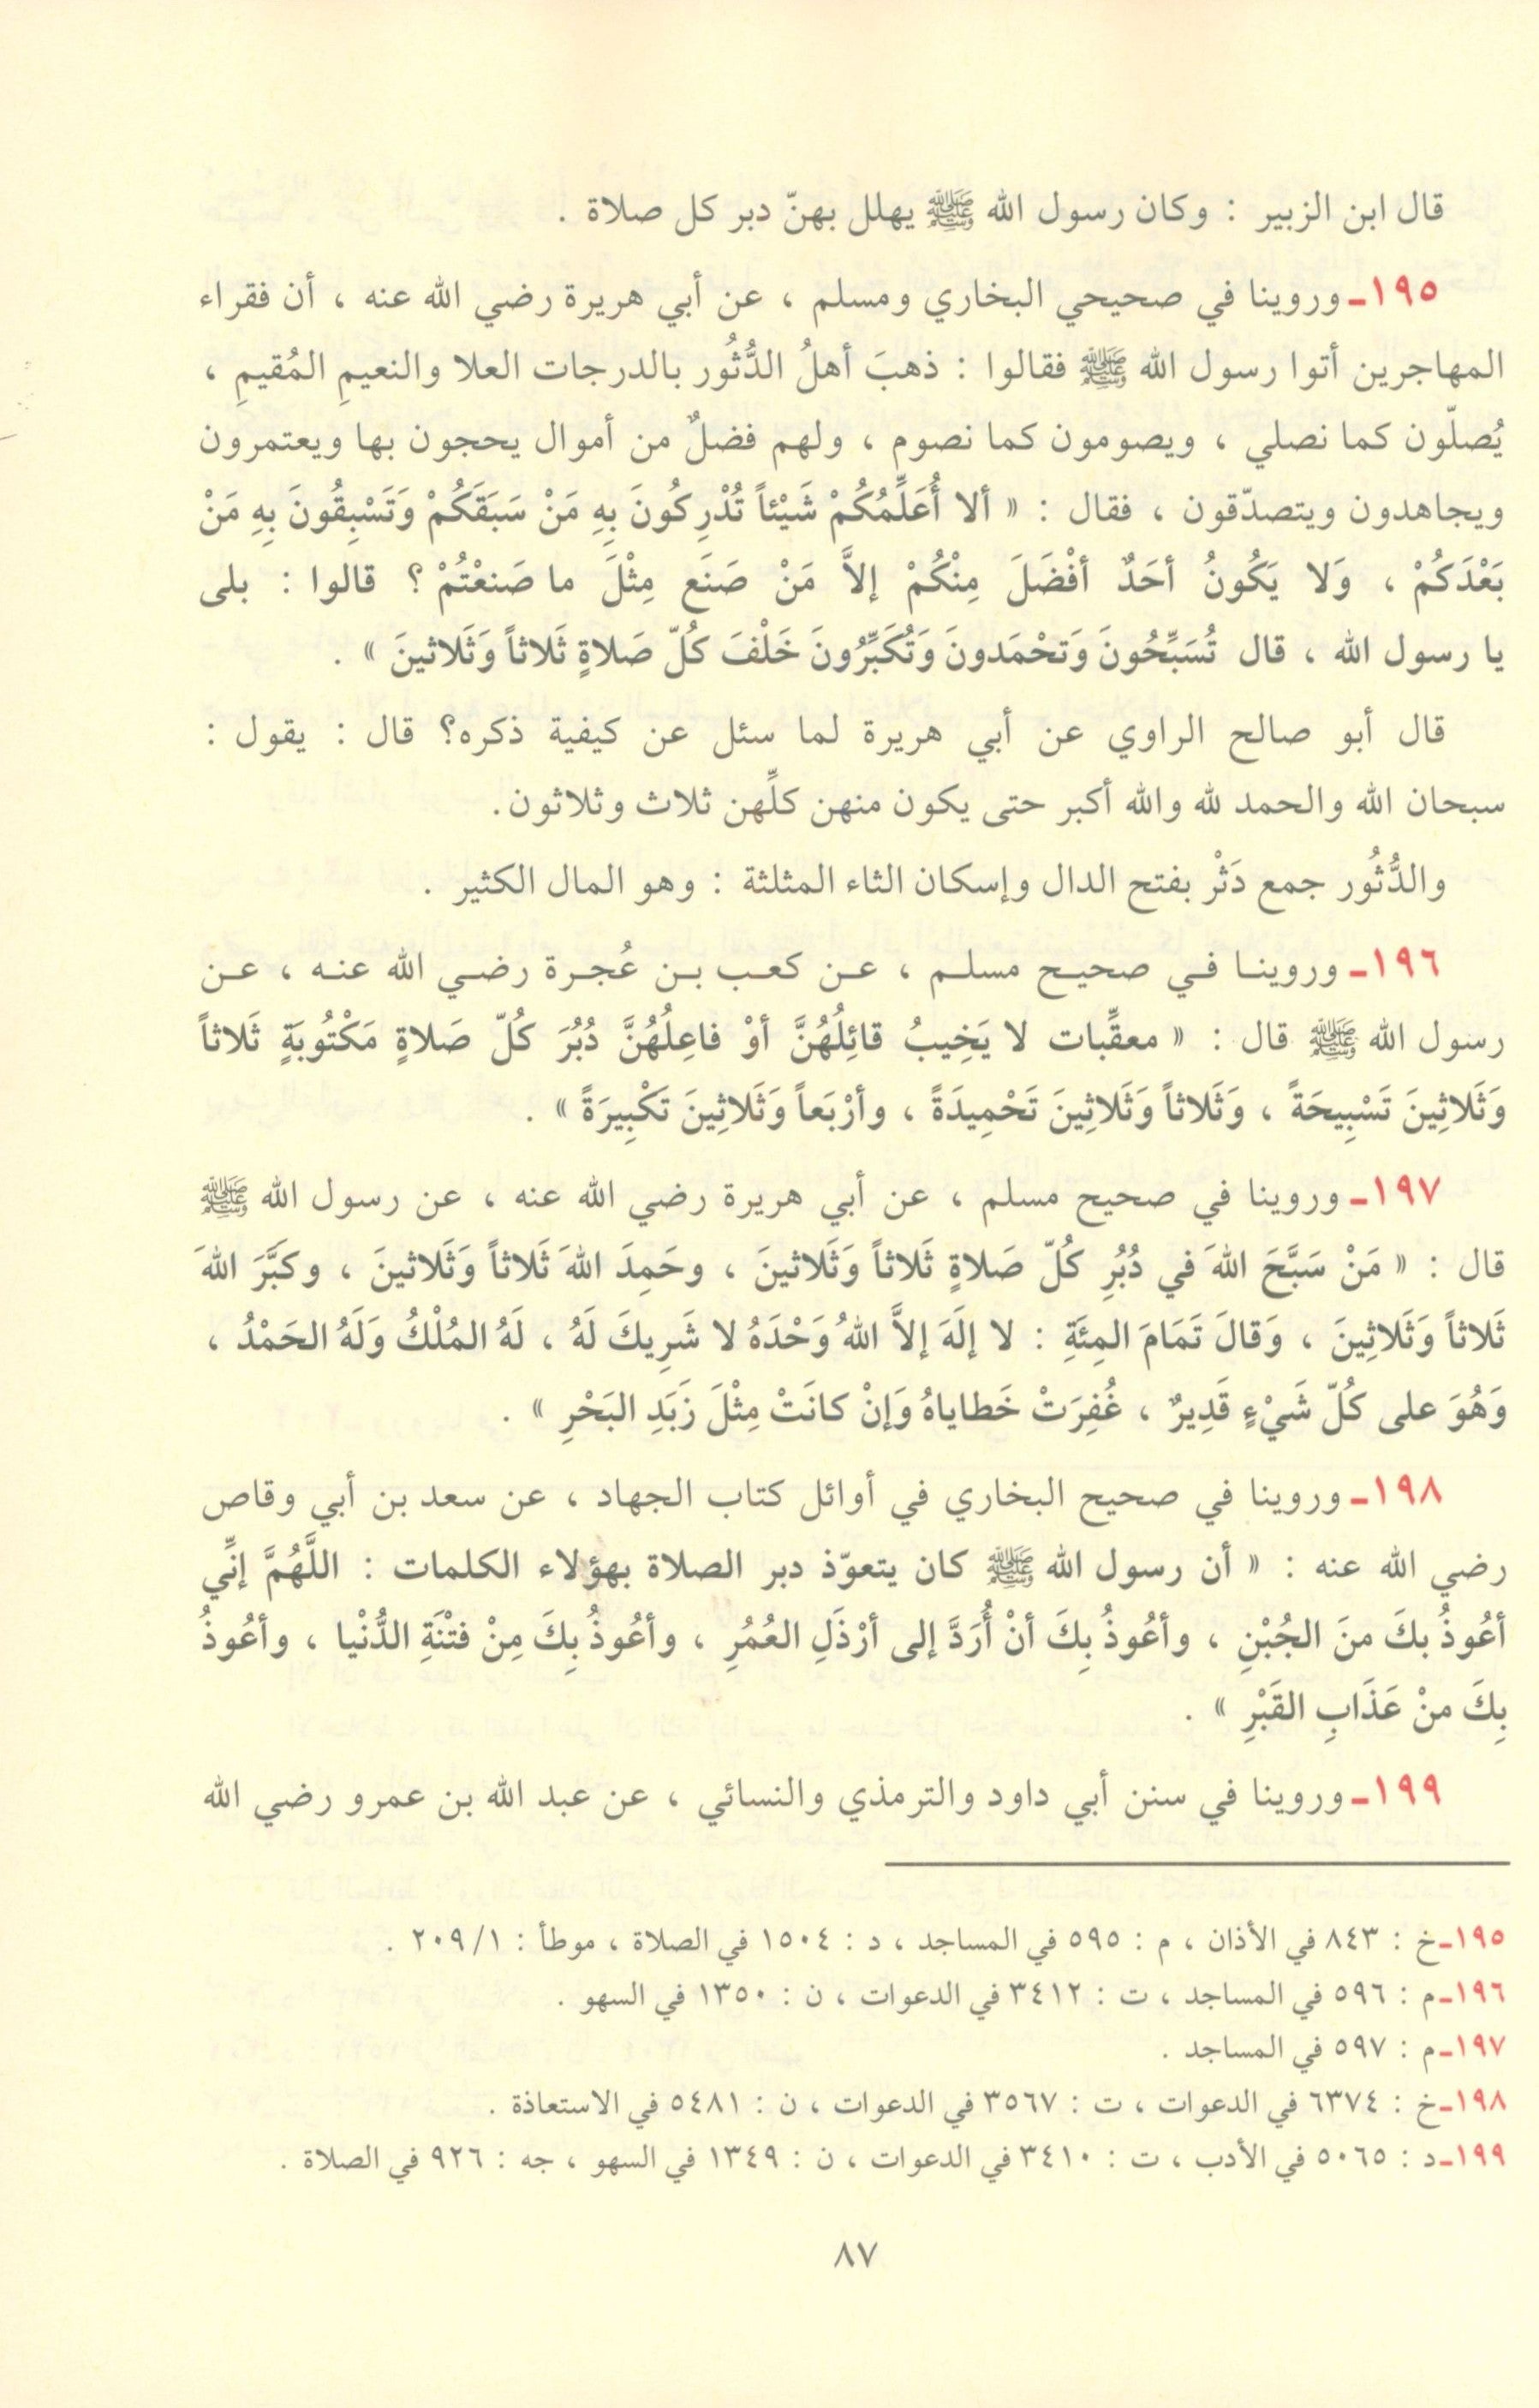 قال ابن الزبير : وكان رسول الله ﷺ يهلل بهنّ دبر كل صلاة .
١٩٥ـ وروينا في صحيحي البخاري ومسلم ، عن أبي هريرة رضي الله عنه ، أن فقراء
المهاجرين أتوا رسول الله ﷺ فقالوا : ذهبَ أهلُ الدُّثُور بالدرجات العلا والنعيمِ المُقيمِ ،
يُصلّون كما نصلي ، ويصومون كما نصوم ، ولهم فضلٌ من أموال يحجون بها ويعتمرون
ويجاهدون ويتصدّقون ، فقال : « ألا أُعَلِّمُكُمْ شَيْئاً تُدْرِكُونَ بِهِ مَنْ سَبَقَكُمْ وَتَسْبِقُونَ بِهِ مَنْ
بَعْدَكُمْ ، وَلا يَكُونُ أحَدٌ أفْضَلَ مِنْكُمْ إلاَّ مَنْ صَنَع مِثْلَ ما صَنعْتُمْ ؟ قالوا : بلى
يا رسول الله ، قال تُسَبِّحُونَ وَتحْمَدونَ وَتُكَبِّرُونَ خَلْفَ كُلّ صَلاةٍ ثَلاثاً وَثَلاثينَ » .
قال أبو صالح الراوي عن أبي هريرة لما سئل عن كيفية ذكره؟ قال : يقول :
سبحان الله والحمد لله والله أكبر حتى يكون منهن كلِّهن ثلاث وثلاثون.
والدُّثُور جمع دَثْر بفتح الدال وإسكان الثاء المثلثة : وهو المال الكثير .
١٩٦ـ وروينا في صحيح مسلم ، عن كعب بن عُجرة رضي الله عنه ، عن
رسول الله ﷺ قال : « معقِّبات لا يَخِيبُ قائِلُهُنَّ أوْ فاعِلُهُنَّ دُبُرَ كُلّ صَلاةٍ مَكْتُوبَةٍ ثَلاثاً
وَثَلاثِينَ تَسْبِيحَةً ، وَثَلاثاً وَثَلاثِينَ تَحْمِيدَةً ، وأرْبَعاً وَثَلاثِينَ تَكْبِيرَةً » .
١٩٧ـ وروينا في صحيح مسلم ، عن أبي هريرة رضي الله عنه ، عن رسول الله ﷺ
قال : « مَنْ سَبَّحَ اللهَ في دُبُرِ كُلّ صَلاةٍ ثَلاثاً وَثَلاثينَ ، وحَمِدَ اللهَ ثَلاثاً وَثَلاثينَ ، وكَبَّرَ اللهَ
ثَلاثاً وَثَلاثِينَ ، وَقالَ تَمَامَ المِئَةِ : لا إلَهَ إلاَّ اللهُ وَحْدَهُ لا شَرِيكَ لَهُ ، لَهُ المُلْكُ وَلَهُ الحَمْدُ ،
وَهُوَ على كُلّ شَيْءٍ قَدِيرٌ ، غُفِرَتْ خَطاياهُ وَإنْ كانَتْ مِثْلَ زَبَدِ البَحْرِ » .
١٩٨ـ وروينا في صحيح البخاري في أوائل كتاب الجهاد ، عن سعد بن أبي وقاص
رضي الله عنه : « أن رسول الله ﷺ كان يتعوّذ دبر الصلاة بهؤلاء الكلمات : اللَّهُمَّ إنِّي
أعُوذُ بكَ منَ الجُبْنِ ، وأعُوذُ بِكَ أنْ أُرَدَّ إلى أرْذَلِ العُمُرِ ، وأعُوذُ بِكَ مِنْ فتْنَةِ الدُّنْيا ، وأعُوذُ
بِكَ منْ عَذَابِ القَبْرِ » .
١٩٩ـ وروينا في سنن أبي داود والترمذي والنسائي ، عن عبد الله بن عمرو رضي الله
١٩٥ـخ : ٨٤٣ في الأذان ، م : ٥٩٥ في المساجد ، د : ١٥٠٤ في الصلاة ، موطأ : ٢٠٩/١ .
١٩٦ـم : ٥٩٦ في المساجد ، ت : ٣٤١٢ في الدعوات ، ن : ١٣٥٠ في السهو .
١٩٧ـم : ٥٩٧ في المساجد .
١٩٨ـخ : ٦٣٧٤ في الدعوات ، ت : ٣٥٦٧ في الدعوات ، ن : ٥٤٨١ في الاستعاذة .
١٩٩ـد : ٥٠٦٥ في الأدب ، ت : ٣٤١٠ في الدعوات ، ن : ١٣٤٩ في السهو ، جه : ٩٢٦ في الصلاة .
٨٧